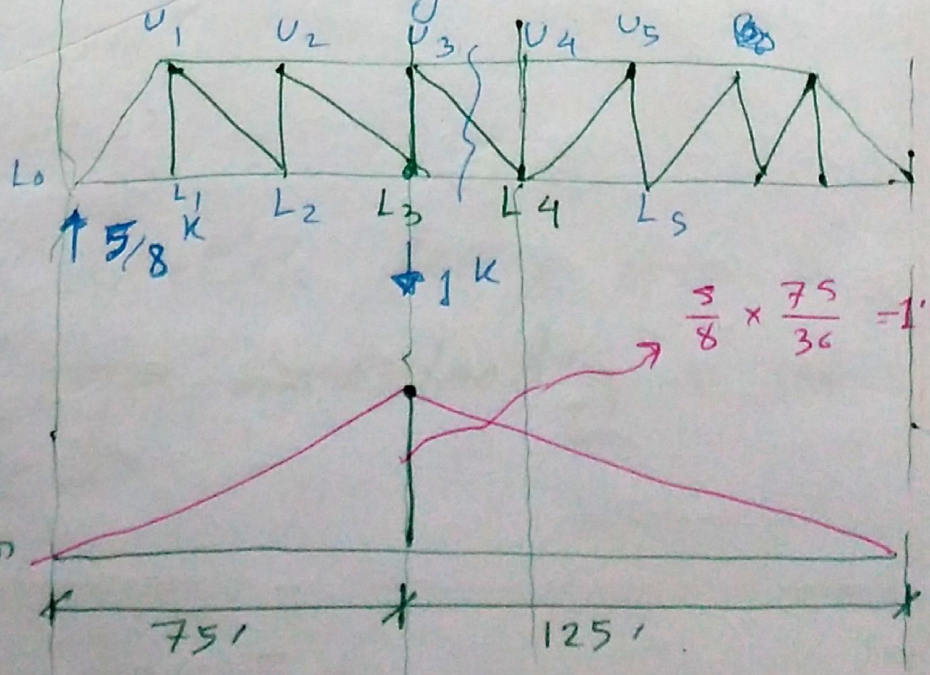 U1 U2 U3 U4 U5
L0 L1 L2 L3 L4 L5
5/8 K
1 K
5/8 × 75/36 = 1
75' 125'